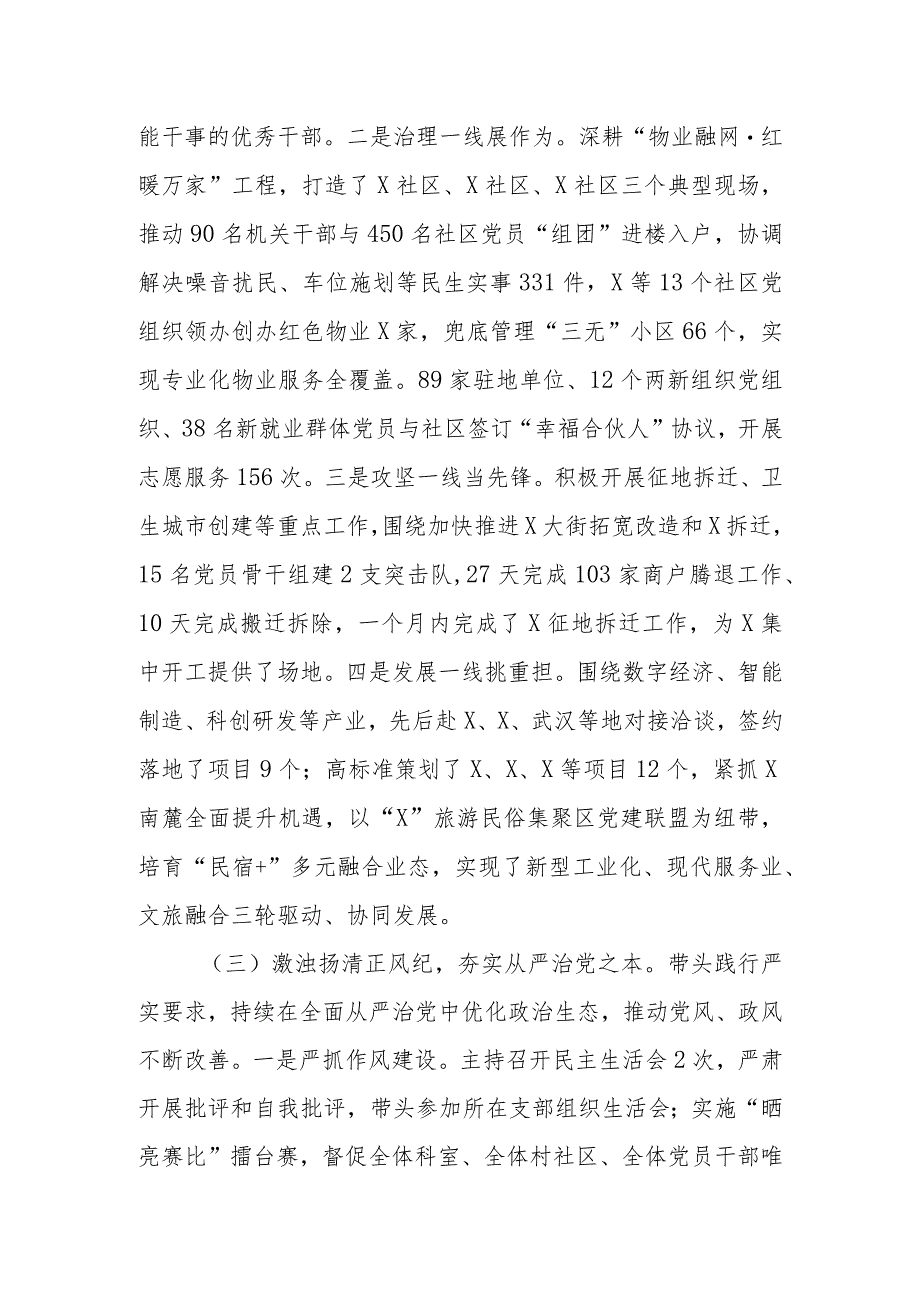 能干事的优秀干部。二是治理一线展作为。深耕“物业融网·红
暖万家”工程，打造了 X 社区、X 社区、X 社区三个典型现场，
推动 90 名机关干部与 450 名社区党员“组团”进楼入户，协调
解决噪音扰民、车位施划等民生实事 331 件，X 等 13 个社区党
组织领办创办红色物业 X 家，兜底管理“三无”小区 66 个，实
现专业化物业服务全覆盖。89 家驻地单位、12 个两新组织党组
织、38 名新就业群体党员与社区签订“幸福合伙人”协议，开展
志愿服务 156 次。三是攻坚一线当先锋。积极开展征地拆迁、卫
生城市创建等重点工作,围绕加快推进 X 大街拓宽改造和 X 拆迁，
15 名党员骨干组建 2 支突击队,27 天完成 103 家商户腾退工作、
10 天完成搬迁拆除，一个月内完成了 X 征地拆迁工作，为 X 集
中开工提供了场地。四是发展一线挑重担。围绕数字经济、智能
制造、科创研发等产业，先后赴 X、X、武汉等地对接洽谈，签约
落地了项目 9 个；高标准策划了 X、X、X 等项目 12 个，紧抓 X
南麓全面提升机遇，以“X”旅游民俗集聚区党建联盟为纽带，
培育“民宿+”多元融合业态，实现了新型工业化、现代服务业、
文旅融合三轮驱动、协同发展。
（三）激浊扬清正风纪，夯实从严治党之本。带头践行严
实要求，持续在全面从严治党中优化政治生态，推动党风、政风
不断改善。一是严抓作风建设。主持召开民主生活会 2 次，严肃
开展批评和自我批评，带头参加所在支部组织生活会；实施“晒
亮赛比”擂台赛，督促全体科室、全体村社区、全体党员干部唯